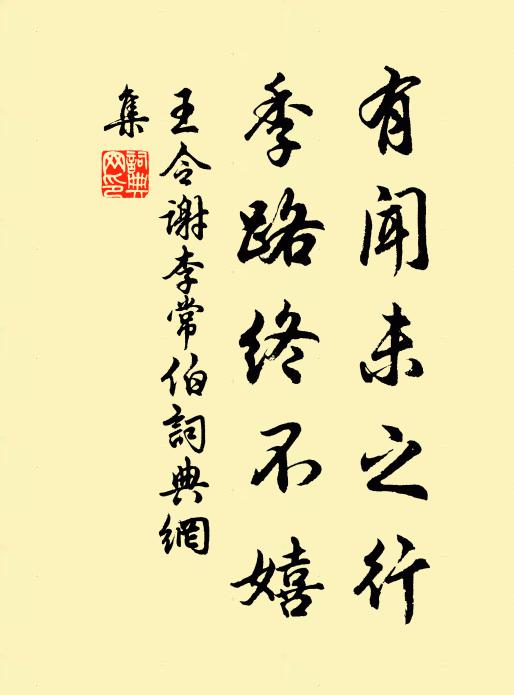 有聞未之行
季路終不嬉
王令謝李常伯詞典網
集
詞典
网印